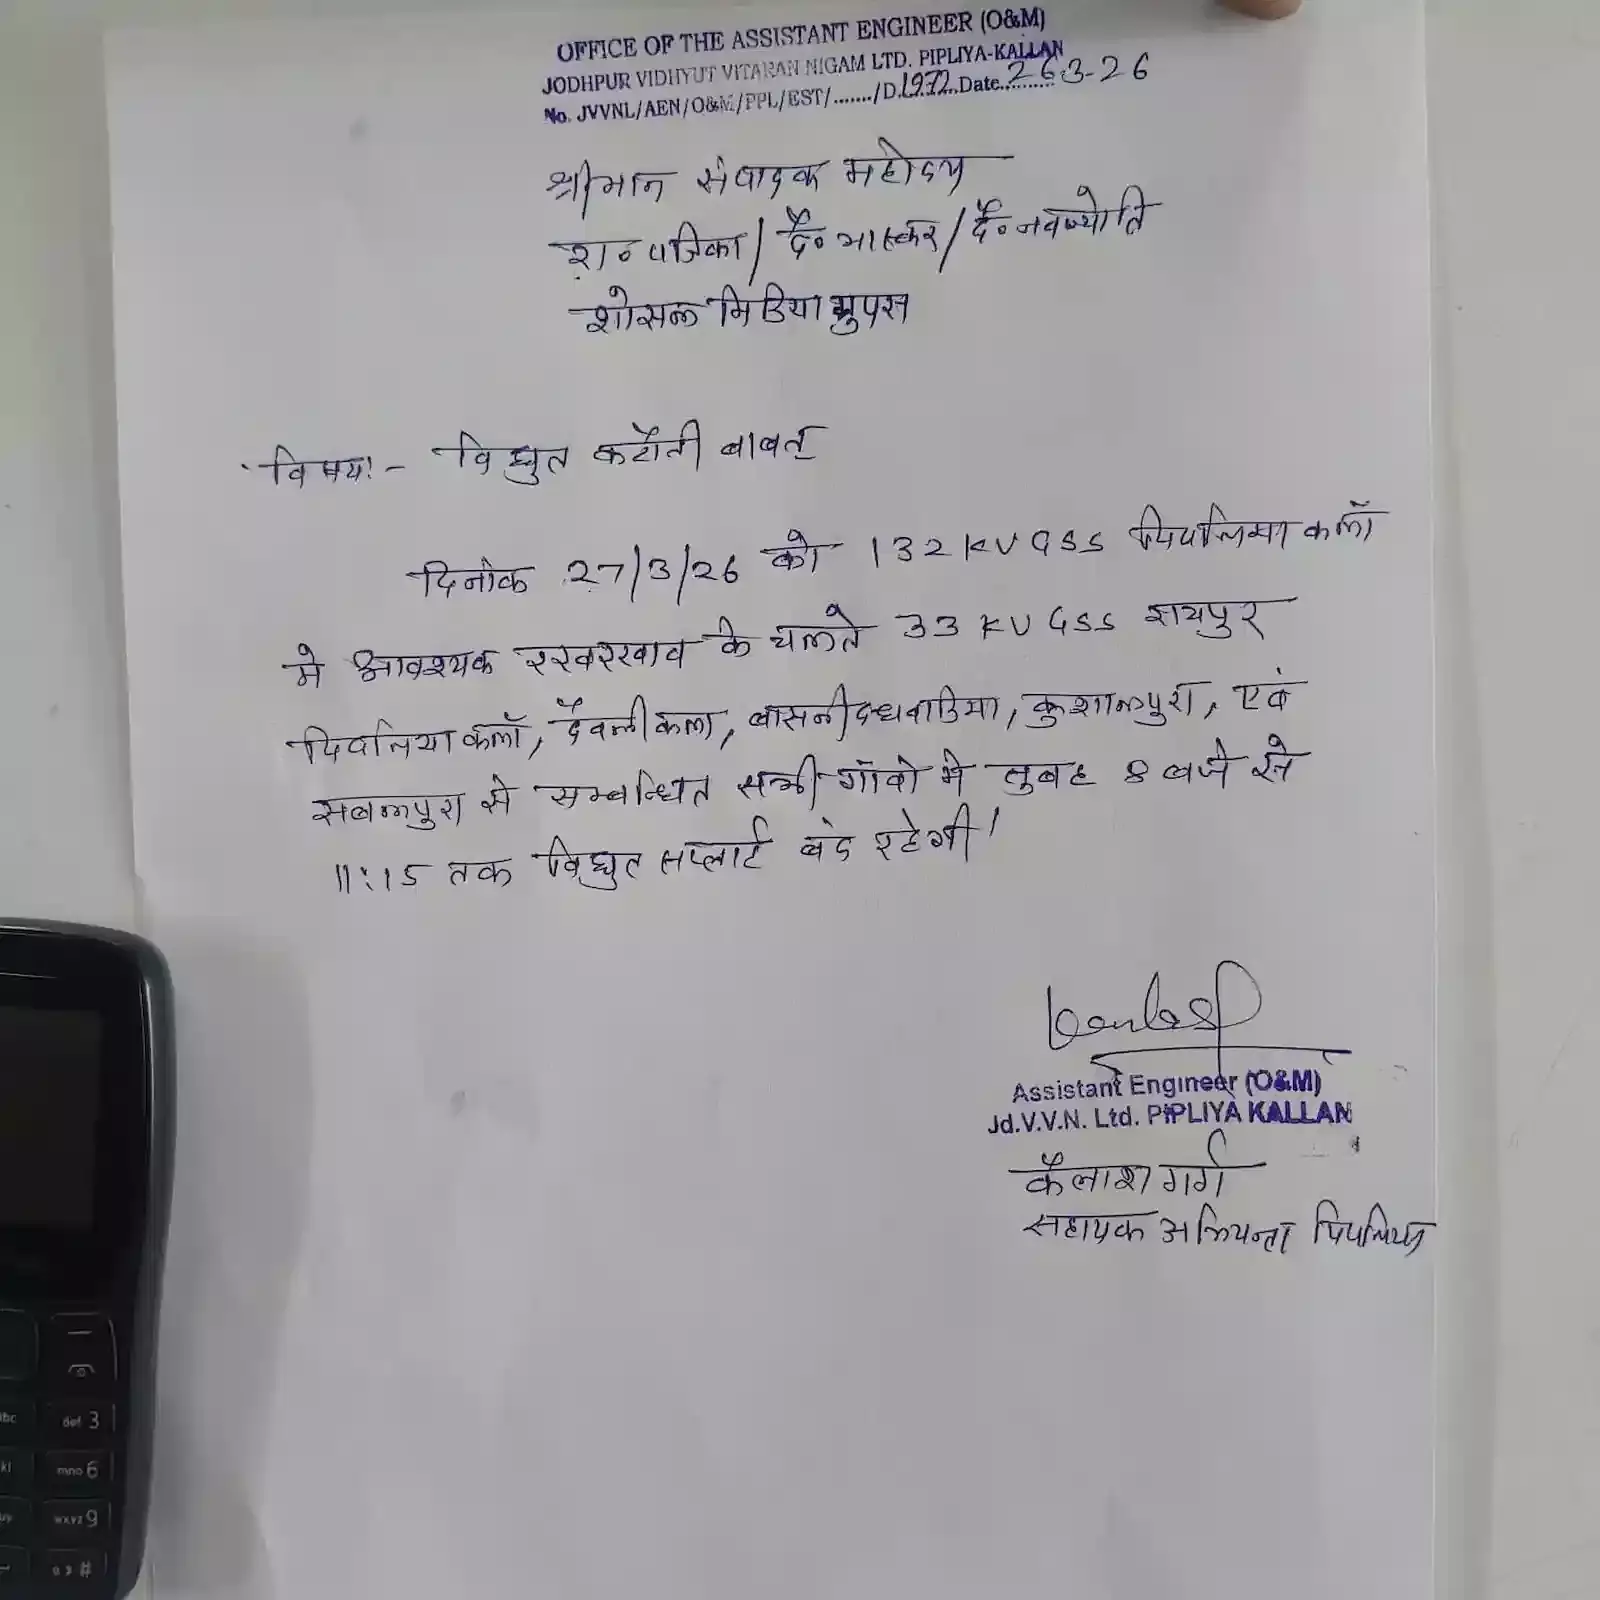 OFFICE OF THE ASSISTANT ENGINEER (O&M)
JODHPUR VIDHYUT VITARAN NIGAM LTD. PIPLIYA-KALLAN
No. JVVNL/AEN/O&M/PPL/EST/......./D.1972.Date.26.3-26
श्रीमान संपादक महोदय
रा० पत्रिका/ दै० भास्कर/ दै० नवज्योति
शोसल मिडिया ग्रुपस
विषय:- विधुत कटौती बाबत्
दिनांक 27/3/26 को 132 KV GSS पिपलिया कलाँ
मे आवश्यक रखरखाव के चलते 33 KV GSS रायपुर
पिपलिया कलाँ, देवली कला, बासनी दधवाडिया, कुशालपुरा, एवं
सबलपुरा से सम्बन्धित सभी गाँवो मे सुबह 8 बजे से
11:15 तक विधुत सप्लाई बंद रहेगी।
Assistant Engineer (O&M)
Jd.V.V.N. Ltd. PIPLIYA KALLAN
कैलाश गर्ग
सहायक अभियन्ता पिपलिया
def 3
mno 6
wxyz 9
#